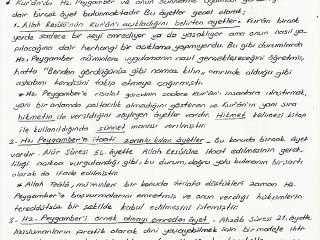 * Kur'ân'da Hz. Peygamber ve onun sünnetine uymanın
dair birçok âyet bulunmaktadır. Bu âyetler genel olarak;
1. Allah Resûlü'nün Kur'ân'ı açıkladığını belirten âyetler. Kur'ân birçok
yerde sadece bir şeyi emrediyor ya da yasaklıyor ama onun nasıl ya-
pılacağına dair herhangi bir açıklama yapmıyordu. Bu gibi durumlarda
Hz. Peygamber mü'minlere uygulamanın nasıl gerçekleşeceğini öğretmiş,
hatta "Benden gördüğünüz gibi namaz kılın, emrinde olduğu gibi
ashabını kendisini takip etmeye çağırmıştı.
* Hz. Peygamber'e risalet görevinin sadece Kur'ân'ı insanlara ulaştırmak,
yani bir anlamda postacılık olmadığını gösteren ve Kur'ân'ın yanı sıra
hikmetin de verildiğini söyleyen âyetler vardır. Hikmet kelimesi bilen
ile kullanıldığında sünnet manası verilmiştir.
2. Hz. Peygamber'e itaati zorunlu kılan âyetler - Bu konuda birçok âyet
vardır. Âlûr Sûresi 54. âyette Allah Resûlü'ne itaat edilmesinin gerek-
liliği açıkça vurgulandığı gibi, bu durum, doğru yolu bulmanın bir şartı
olarak da ifade edilmiştir.
* Allah Teâlâ, mü'minlere bir konuda ihtilafa düştükleri zaman Hz.
Peygamber'e başvurmalarını emretmiş ve onun verdiği hükümlerin
tereddütsüz bir şekilde kabul edilmesini istemiştir.
3. Hz. Peygamber'i örnek almayı emreden âyet - Ahzâb Sûresi 21. âyette
Müslümanların pratik olarak dini yaşayabilmek için bir modele ihti-